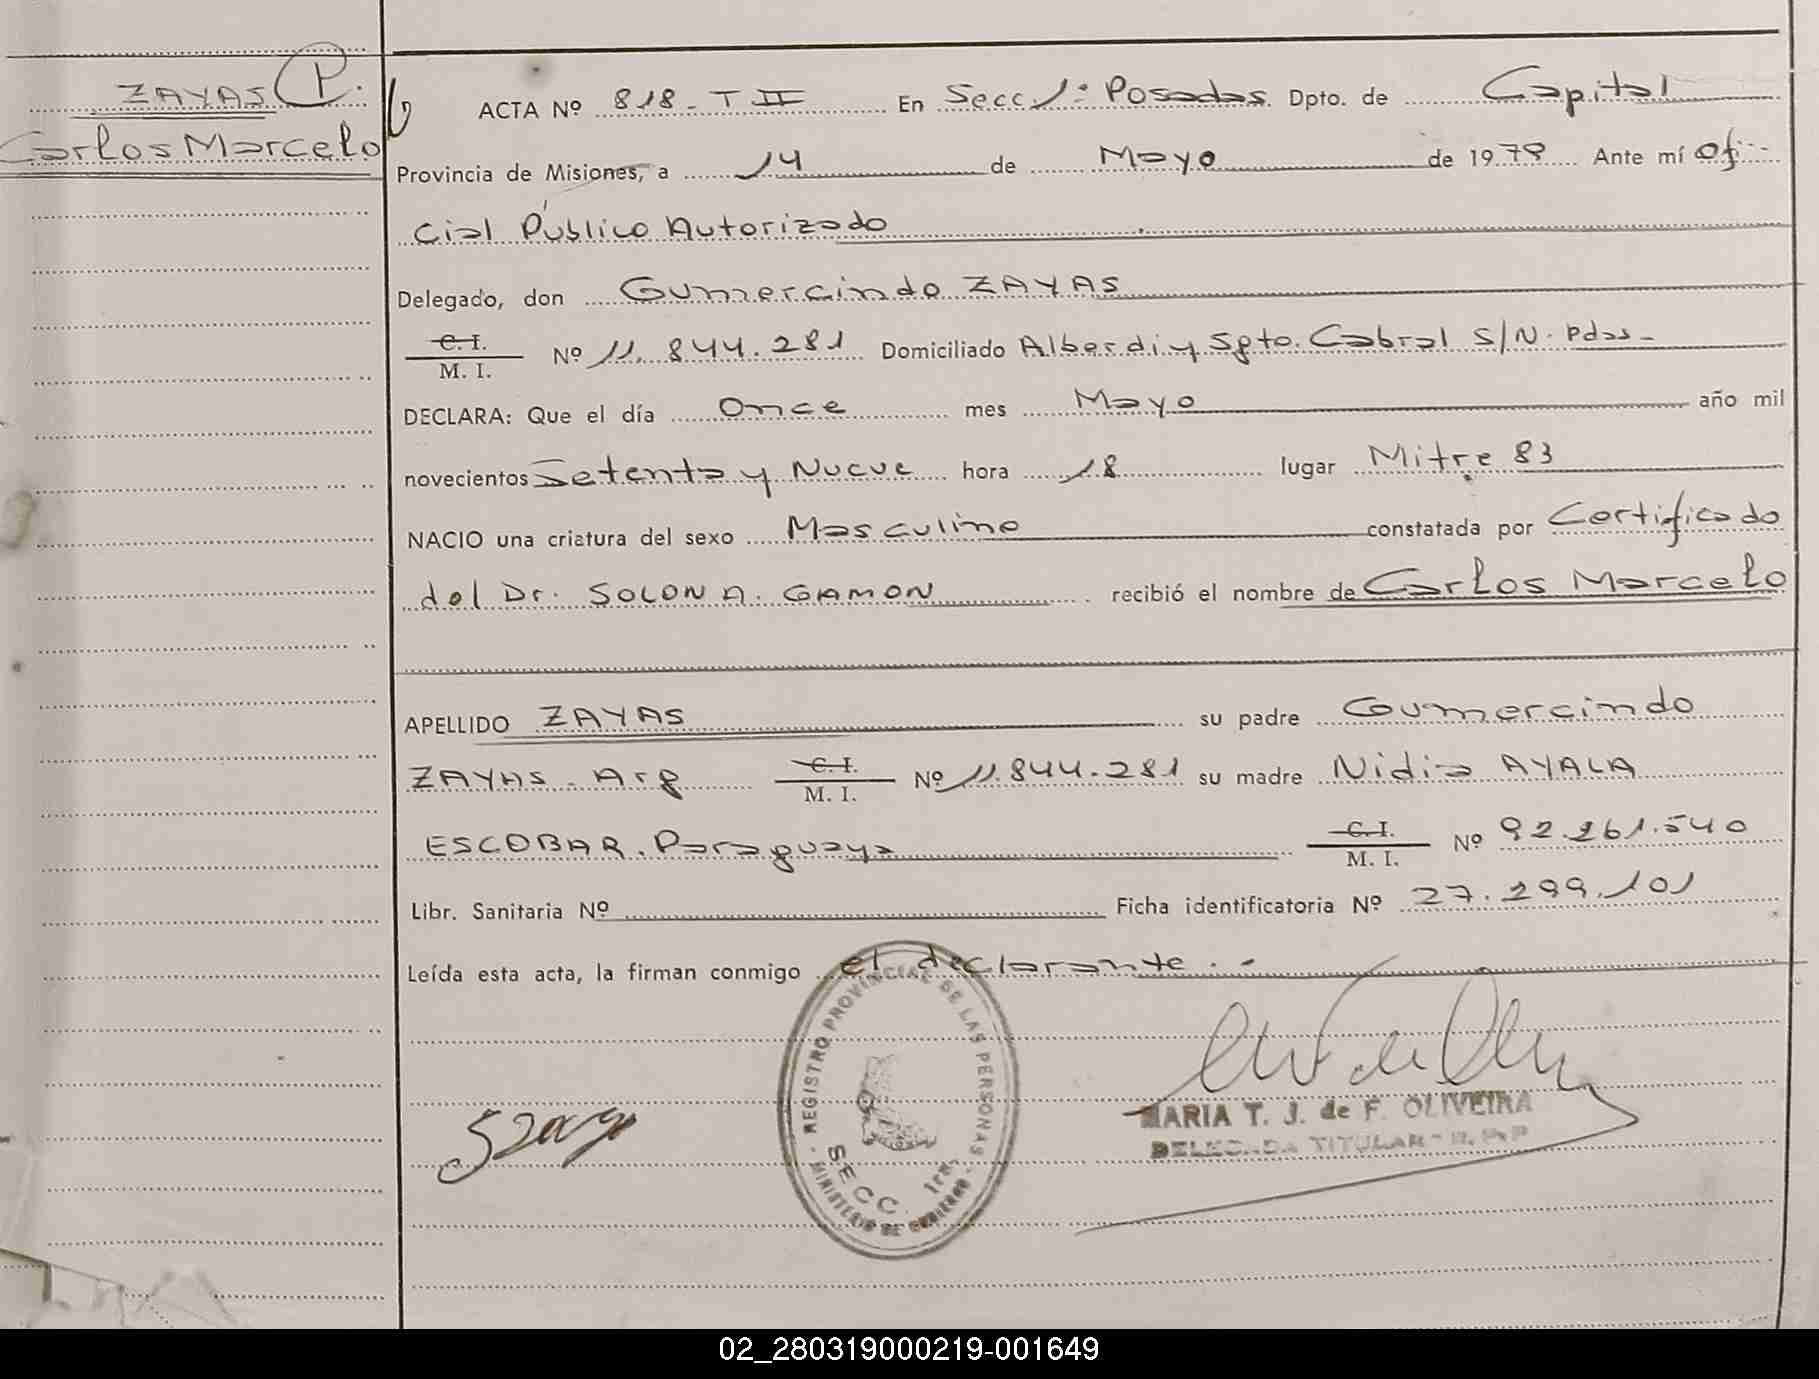 ZAYAS P.
Carlos Marcelo
ACTA Nº 818-T II En Secc 1ª Posadas Dpto. de Capital
Provincia de Misiones, a 14 de Mayo de 1979 Ante mí Ofi-
cial Público Autorizado
Delegado, don Gumercindo ZAYAS
C. I.
M. I. Nº 11.844.281 Domiciliado Alberdi y Sgto. Cabral S/N. Pdas-
DECLARA: Que el día Once mes Mayo año mil
novecientos Setenta y Nueve hora 18 lugar Mitre 83
NACIO una criatura del sexo Masculino constatada por Certificado
del Dr. SOLON A. GAMON recibió el nombre de Carlos Marcelo
APELLIDO ZAYAS su padre Gumercindo
ZAYAS - Arg C. I.
M. I. Nº 11.844.281 su madre Nidia AYALA
ESCOBAR. Paraguaya C. I.
M. I. Nº 92.261.540
Libr. Sanitaria Nº Ficha identificatoria Nº 27.299.101
Leída esta acta, la firman conmigo el declarante.-
REGISTRO PROVINCIAL DE LAS PERSONAS
SECC. 1ra.
MINISTERIO DE GOBIERNO
MARIA T. J. de F. OLIVEIRA
DELEGADA TITULAR - R. P. P
02_280319000219-001649